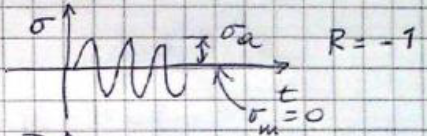 σ σa R = -1
t
σm = 0